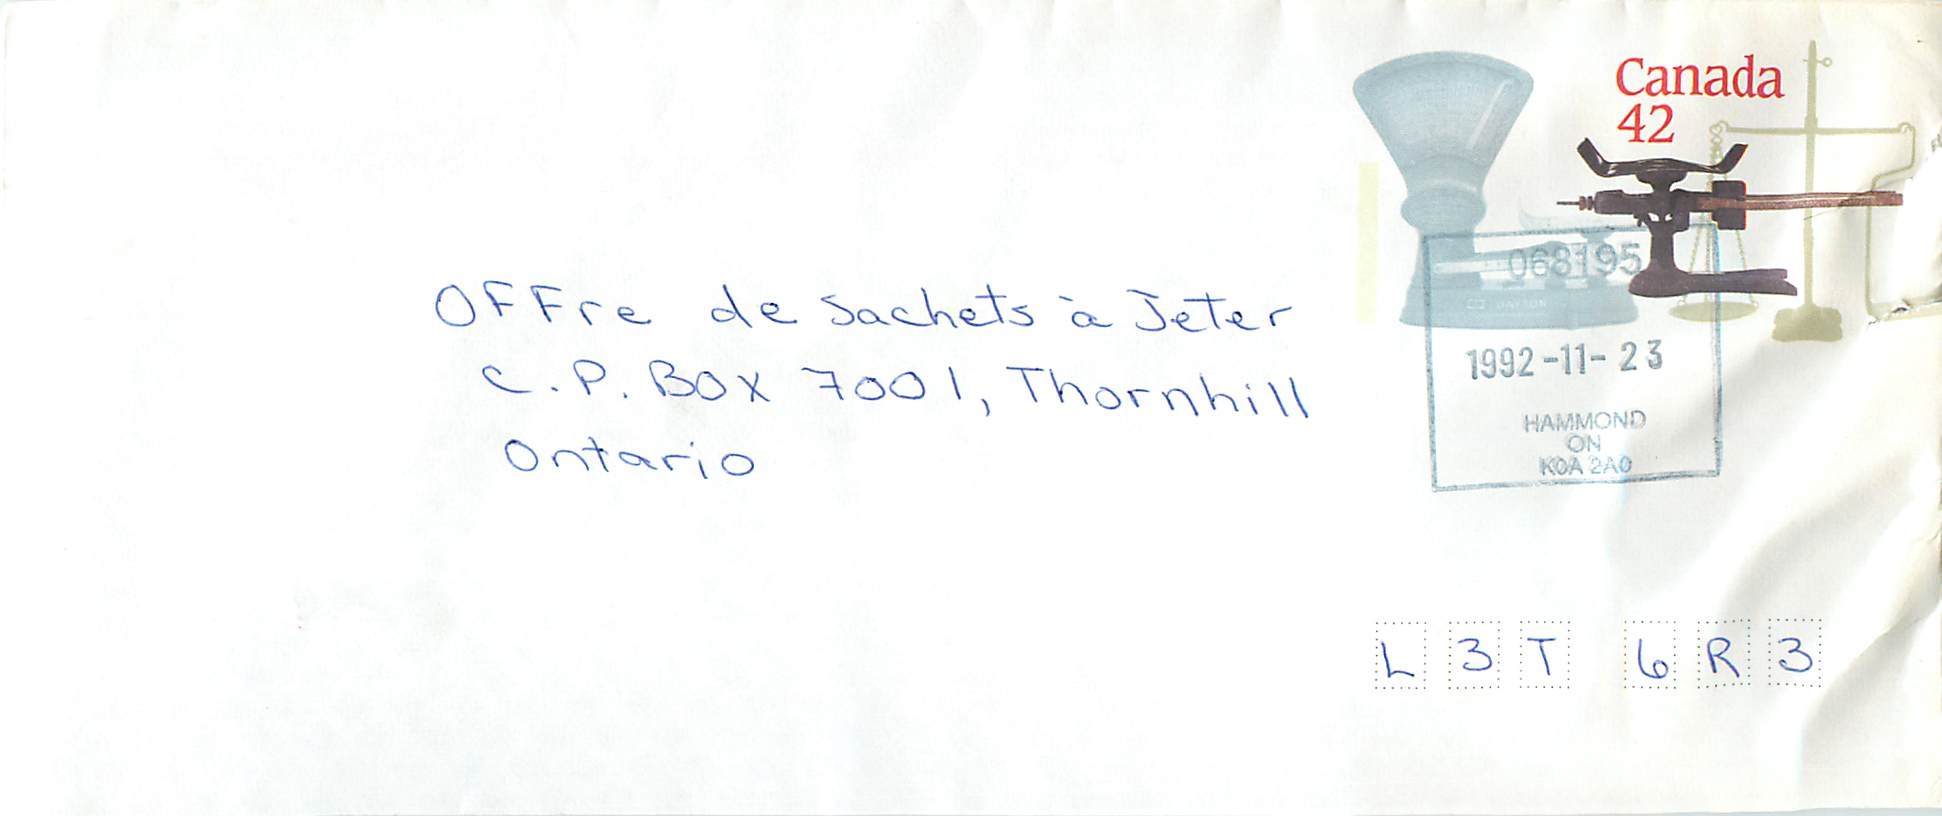 Canada
42
068195
1992-11-23
HAMMOND
ON
K0A 2A0
OFFre de Sachets à Jeter
C.P. BOX 7001, Thornhill
Ontario
L3T 6R3